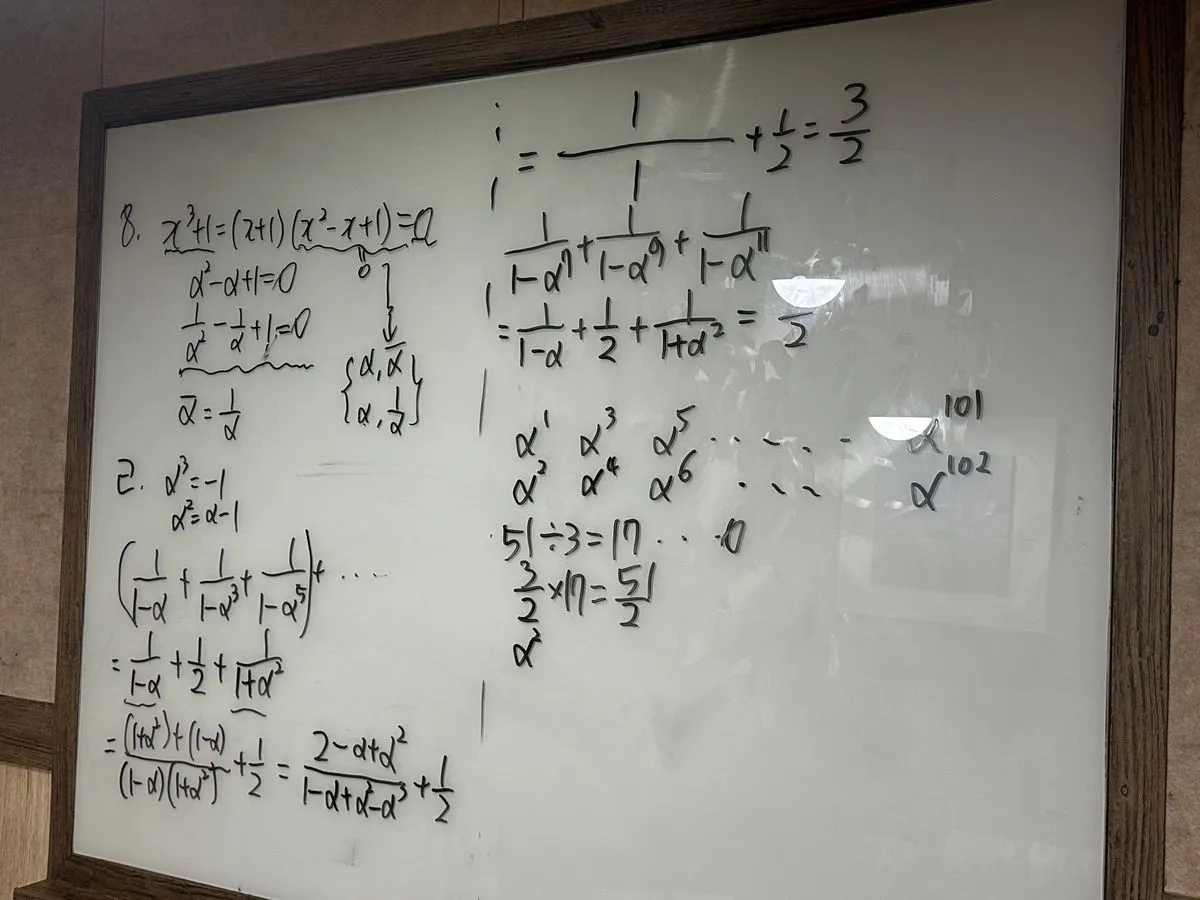 8. x³+1=(x+1)(x²-x+1)=0
0
α²-α+1=0
1/α² - 1/α +1=0
{α, ᾱ
α, 1/α}
ᾱ = 1/α
ㄹ. α³=-1
α²=α-1
(1/(1-α) + 1/(1-α³) + 1/(1-α⁵)) + ...
= 1/(1-α) + 1/2 + 1/(1+α²)
= ((1+α²)+(1-α))/((1-α)(1+α²)) + 1/2 = (2-α+α²)/(1-α+α²-α³) + 1/2
= 1/1 + 1/2 = 3/2
1/(1-α⁷) + 1/(1-α⁹) + 1/(1-α¹¹)
= 1/(1-α) + 1/2 + 1/(1+α²) = /2
α¹ α³ α⁵ ..... α¹⁰¹
α² α⁴ α⁶ ... α¹⁰²
51÷3=17...0
3/2 ×17= 51/2
α²